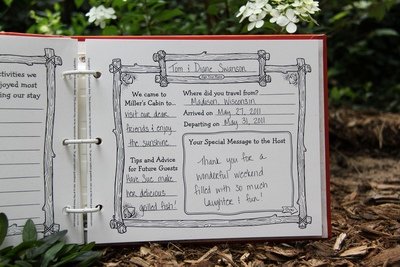 ctivities we
enjoyed most
ing our stay
Tom & Diane Swanson
We came to
Miller's Cabin to...
visit our dear
friends & enjoy
the sunshine
Tips and Advice
for Future Guests
Have Sue make
her delicious
grilled fish!
Where did you travel from?
Madison, Wisconsin
Arrived on May 27, 2011
Departing on May 31, 2011
Your Special Message to the Host
Thank you for a
wonderful weekend
filled with so much
laughter & fun!